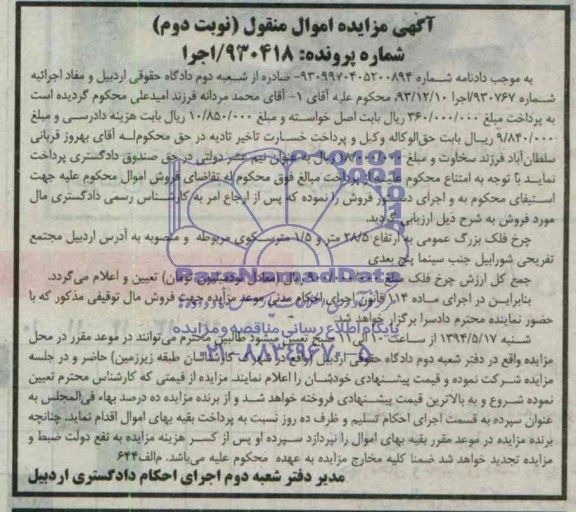 آگهی مزایده اموال منقول (نوبت دوم)
شماره پرونده: ۹۳۰۴۱۸/اجرا
به موجب دادنامه شماره ۹۳۰۹۹۷۰۴۰۵۲۰۰۸۹۴- صادره از شعبه دوم دادگاه حقوقی اردبیل و مفاد اجرائیه
شماره ۹۳۰۷۶۷/اجرا ۹۳/۱۲/۱۰، محکوم علیه آقای ۱- آقای محمد مردانه فرزند امیدعلی محکوم گردیده است
به پرداخت مبلغ ۳۶۰/۰۰۰/۰۰۰ ریال بابت اصل خواسته و مبلغ ۱۰/۸۵۰/۰۰۰ ریال بابت هزینه دادرسی و مبلغ
۹/۸۴۰/۰۰۰ ریال بابت حق‌الوکاله وکیل و پرداخت خسارت تاخیر تادیه در حق محکوم‌له آقای بهروز قربانی
سلطان‌آباد فرزند سخاوت و مبلغ ریال به عنوان نیم عشر دولتی در حق صندوق دادگستری پرداخت
نماید با توجه به امتناع محکوم علیه از پرداخت مبالغ فوق محکوم له تقاضای فروش اموال محکوم علیه جهت
استیفای محکوم به و اجرای دستور فروش را نموده که پس از ارجاع امر به کارشناس رسمی دادگستری مال
مورد فروش به شرح ذیل ارزیابی گردید.
چرخ فلک بزرگ عمومی به ارتفاع ۲۸/۵ متر و ۱/۵ مترسکوی مربوطه و منصوبه به آدرس اردبیل مجتمع
تفریحی شورابیل جنب سینما پنج بعدی
جمع کل ارزش چرخ فلک مبلغ ریال (معادل نودمیلیون تومان) تعیین و اعلام می‌گردد.
بنابراین در اجرای ماده ۱۱۴ قانون اجرای احکام مدنی موعد مزایده جهت فروش مال توقیفی مذکور که با
حضور نماینده محترم دادسرا برگزار خواهد شد.
شنبه ۱۳۹۴/۵/۱۷ از ساعت ۱۰ الی ۱۱ صبح تعیین میشود طالبین محترم می‌توانند در موعد مقرر در محل
مزایده واقع در دفتر شعبه دوم دادگاه حقوقی اردبیل (واقع در شهرک کارشناسان طبقه زیرزمین) حاضر و در جلسه
مزایده شرکت نموده و قیمت پیشنهادی خودشان را اعلام نمایند. مزایده از قیمتی که کارشناس محترم تعیین
نموده شروع و به بالاترین قیمت پیشنهادی فروخته خواهد شد و از برنده مزایده ده درصد بهاء فی‌المجلس به
عنوان سپرده به قسمت اجرای احکام تسلیم و ظرف ده روز نسبت به پرداخت بقیه بهای اموال اقدام نماید. چنانچه
برنده مزایده در موعد مقرر بقیه بهای اموال را نپردازد سپرده او پس از کسر هزینه مزایده به نفع دولت ضبط و
مزایده تجدید خواهد شد ضمنا کلیه مخارج مزایده به عهده محکوم علیه می‌باشد. م‌الف۶۴۴
مدیر دفتر شعبه دوم اجرای احکام دادگستری اردبیل
ParsNamadData
پایگاه اطلاع رسانی مناقصه و مزایده
۰۲۱-۸۸۳۴۹۶۷۰-۵